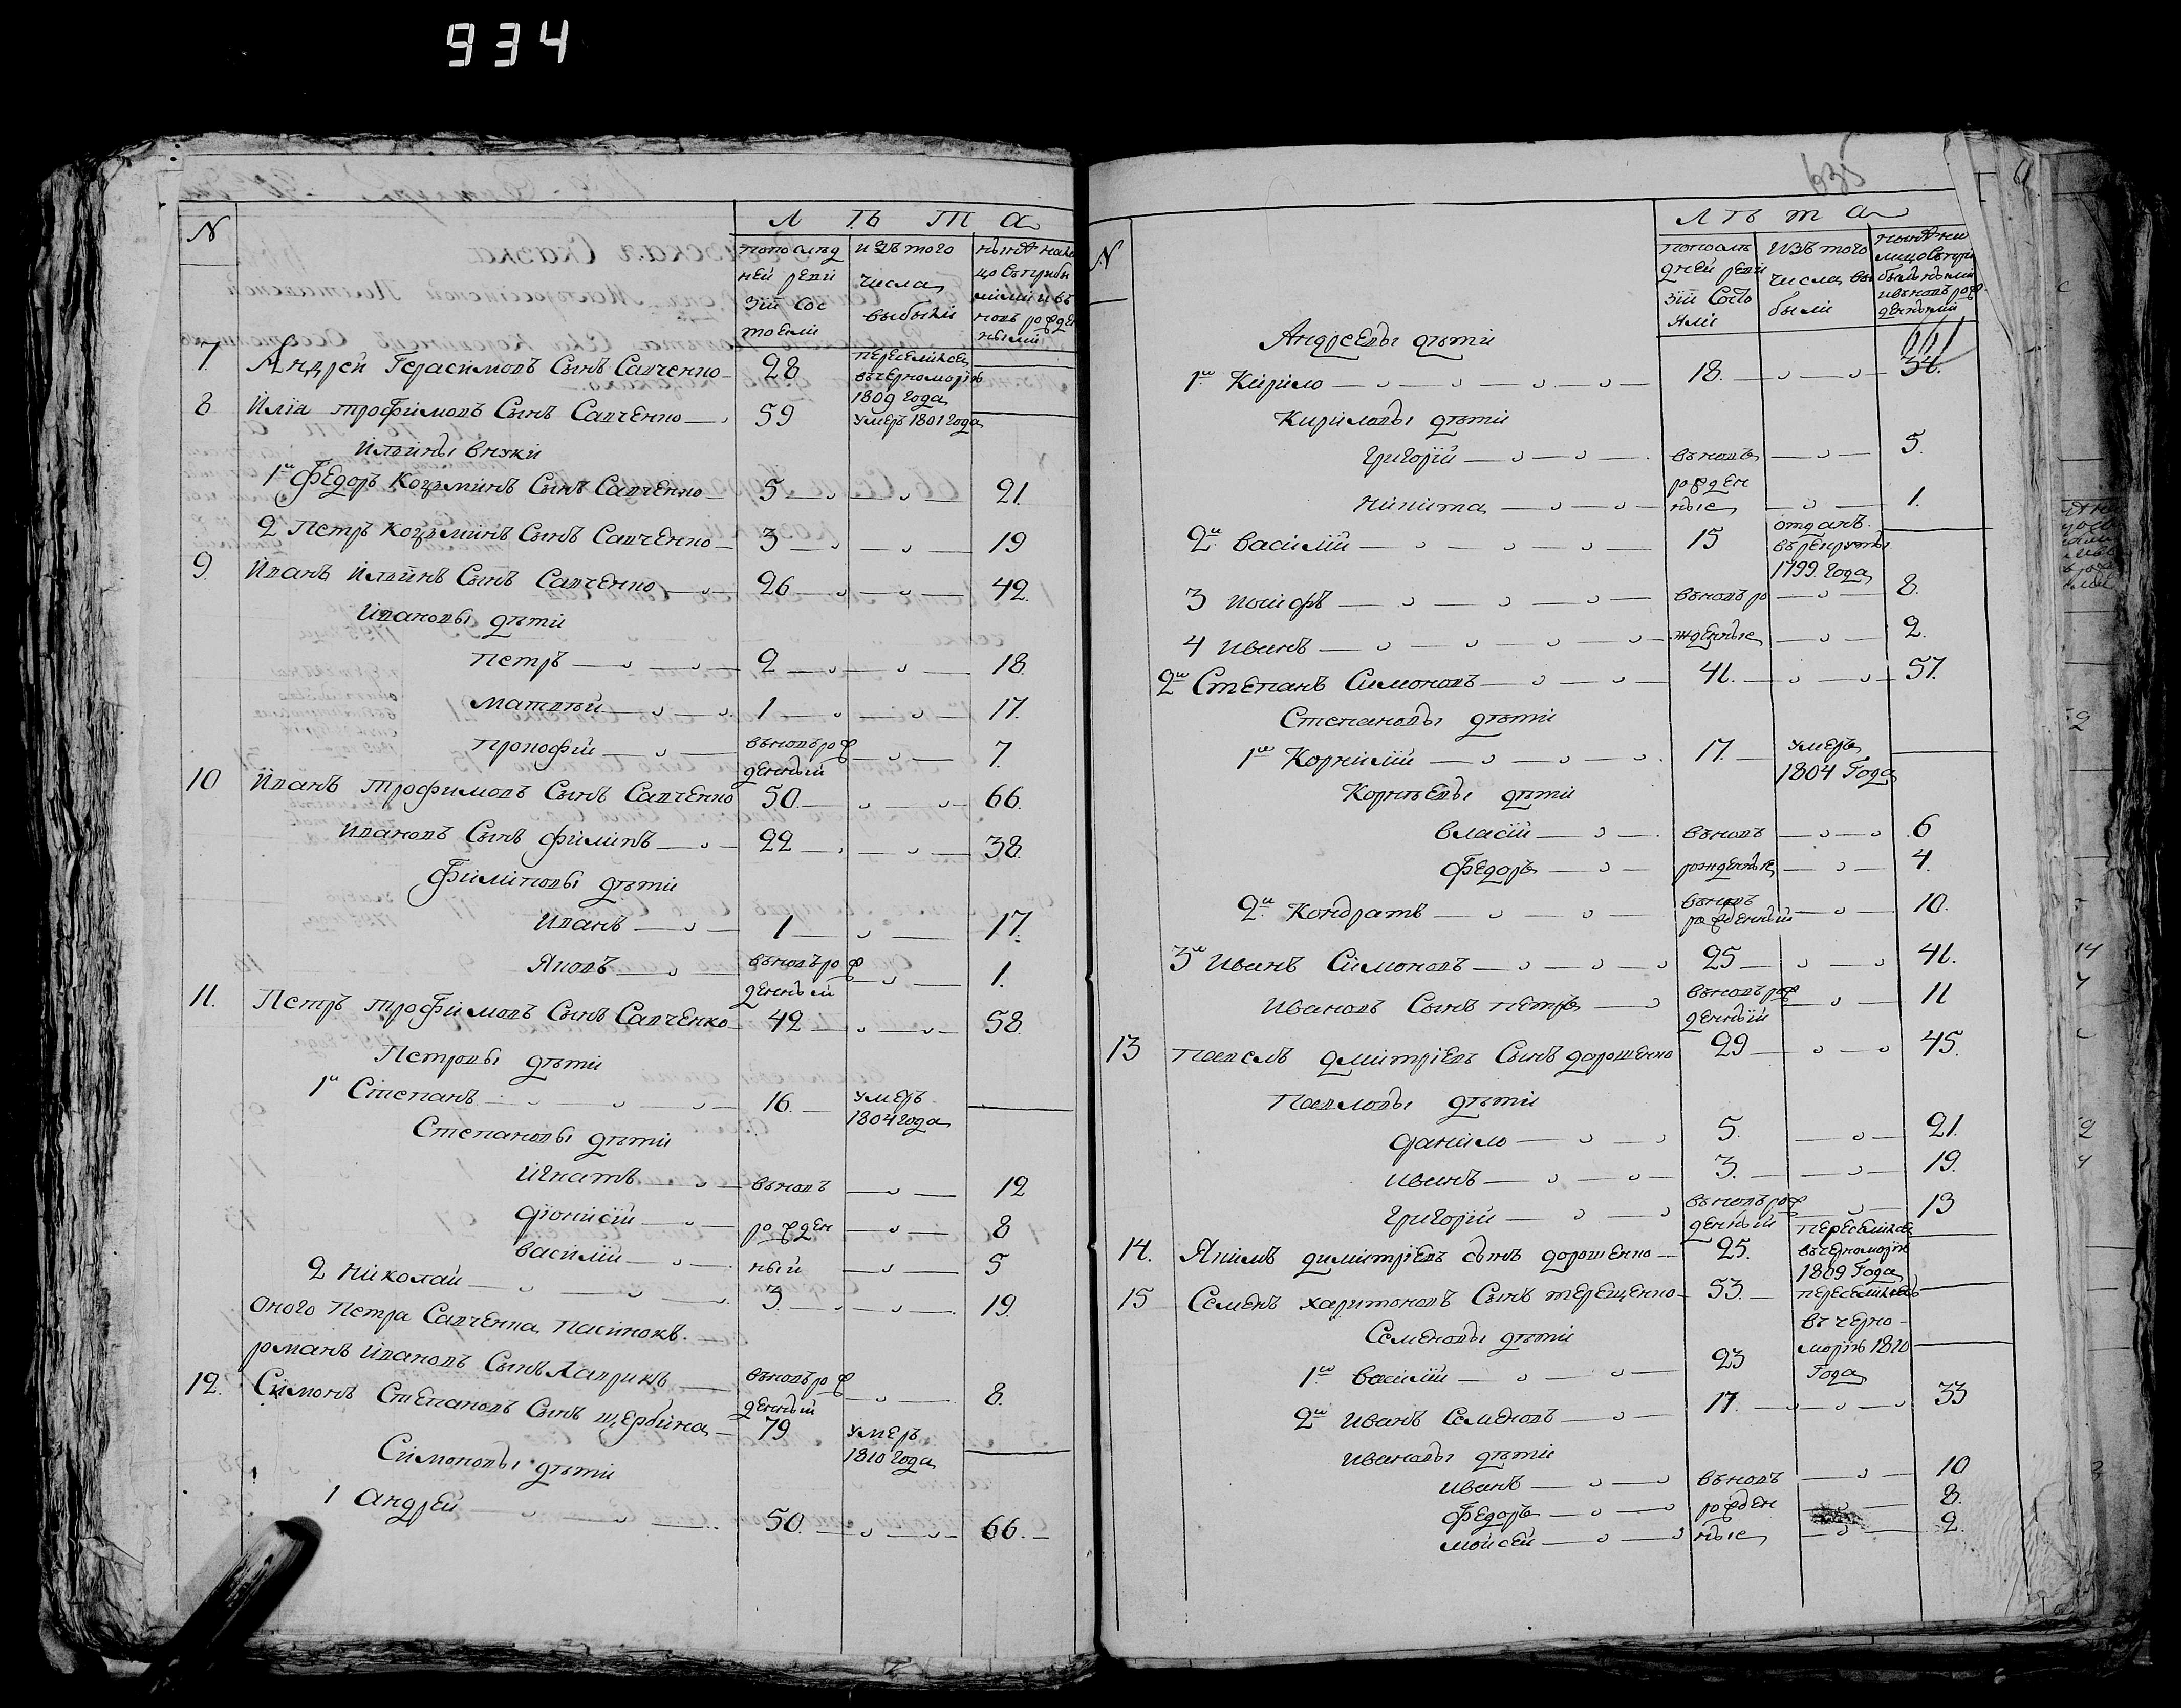 934
N
Л ѣ т а
по послѣд
ней реви
зіи сос
тояли
изъ того
числа
выбыли
7. Андрей Герасимовъ Сынъ Савченко 28 переселился
въ черноморіѣ
1809 года
8 Илія трофимовъ Сынъ Савченко 59 умеръ 1801 года
Ильины внуки
1й Федоръ Козьминъ Сынъ Савченко 5 21.
2 Петръ Козьминъ Сынъ Савченко 3 19
9. Иванъ Ильинъ Сынъ Савченко 26 42.
Ивановы дѣти
петръ 2 18.
матвѣй 1 17.
прокофій вновь рож
денный 7.
10 Иванъ трофимовъ Сынъ Савченко 50. 66.
Ивановъ Сынъ филипъ 22 38.
Филиповы дѣти
Иванъ 1 17.
Яковъ вновь рож
денный 1.
11. Петръ трофимовъ Сынъ Савченко 42 58.
Петровы дѣти
1й Степанъ 16. умеръ
1804 года
Степановы дѣти
Игнатъ вновь 12
діонисій рожден 8
василій ный 5
2 Николай 3 19.
Оного Петра Савченка пасинокъ
романъ Ивановъ Сынъ Лавр­икъ вновь рож
денный 8.
12. Симонъ Степановъ Сынъ щербина 79 умеръ
1810 года
Симоновы дѣти
1 андрей 50. 66.
635
N
Л ѣ т а
по послѣ
дней реви
зіи состо
яли
изъ того
числа вы
были
Андреевы дѣти
1й Кирило 18. 34.
Кириловы дѣти
григорій вновь 5.
никита рожден
ные 1.
2й василій 15 отданъ
въ рекруты
1799. года
3 иосифъ вновь ро 8.
4 иванъ жденные 2.
2й Степанъ Симоновъ 41. 57.
Степановы дѣти
1й Корнилій 17. умеръ
1804 Года
Корнѣевы дѣти
власій вновь 6
федоръ рожденые 4.
2й Кондратъ вновь
рожденный 10.
3й иванъ Симоновъ 25 41.
ивановъ Сынъ петръ вновь рож
денный 11
13 павелъ дмитріевъ Сынъ дорошенко 29 45.
Павловы дѣти
данило 5. 21.
иванъ 3. 19.
григорій вновь рож
денный 13
14. Якимъ димитріевъ сынъ дорошенко 25. переселился
въ черноморіѣ
1809 Года
15 Семенъ харитоновъ Сынъ терещенко 53. переселился
въ черно
моріѣ 1810
Года
Семеновы дѣти
1й василій 23
2й иванъ Семеновъ 17. 33
ивановы дѣти
иванъ вновь 10
федоръ рожден 8.
мойсей ные 2.